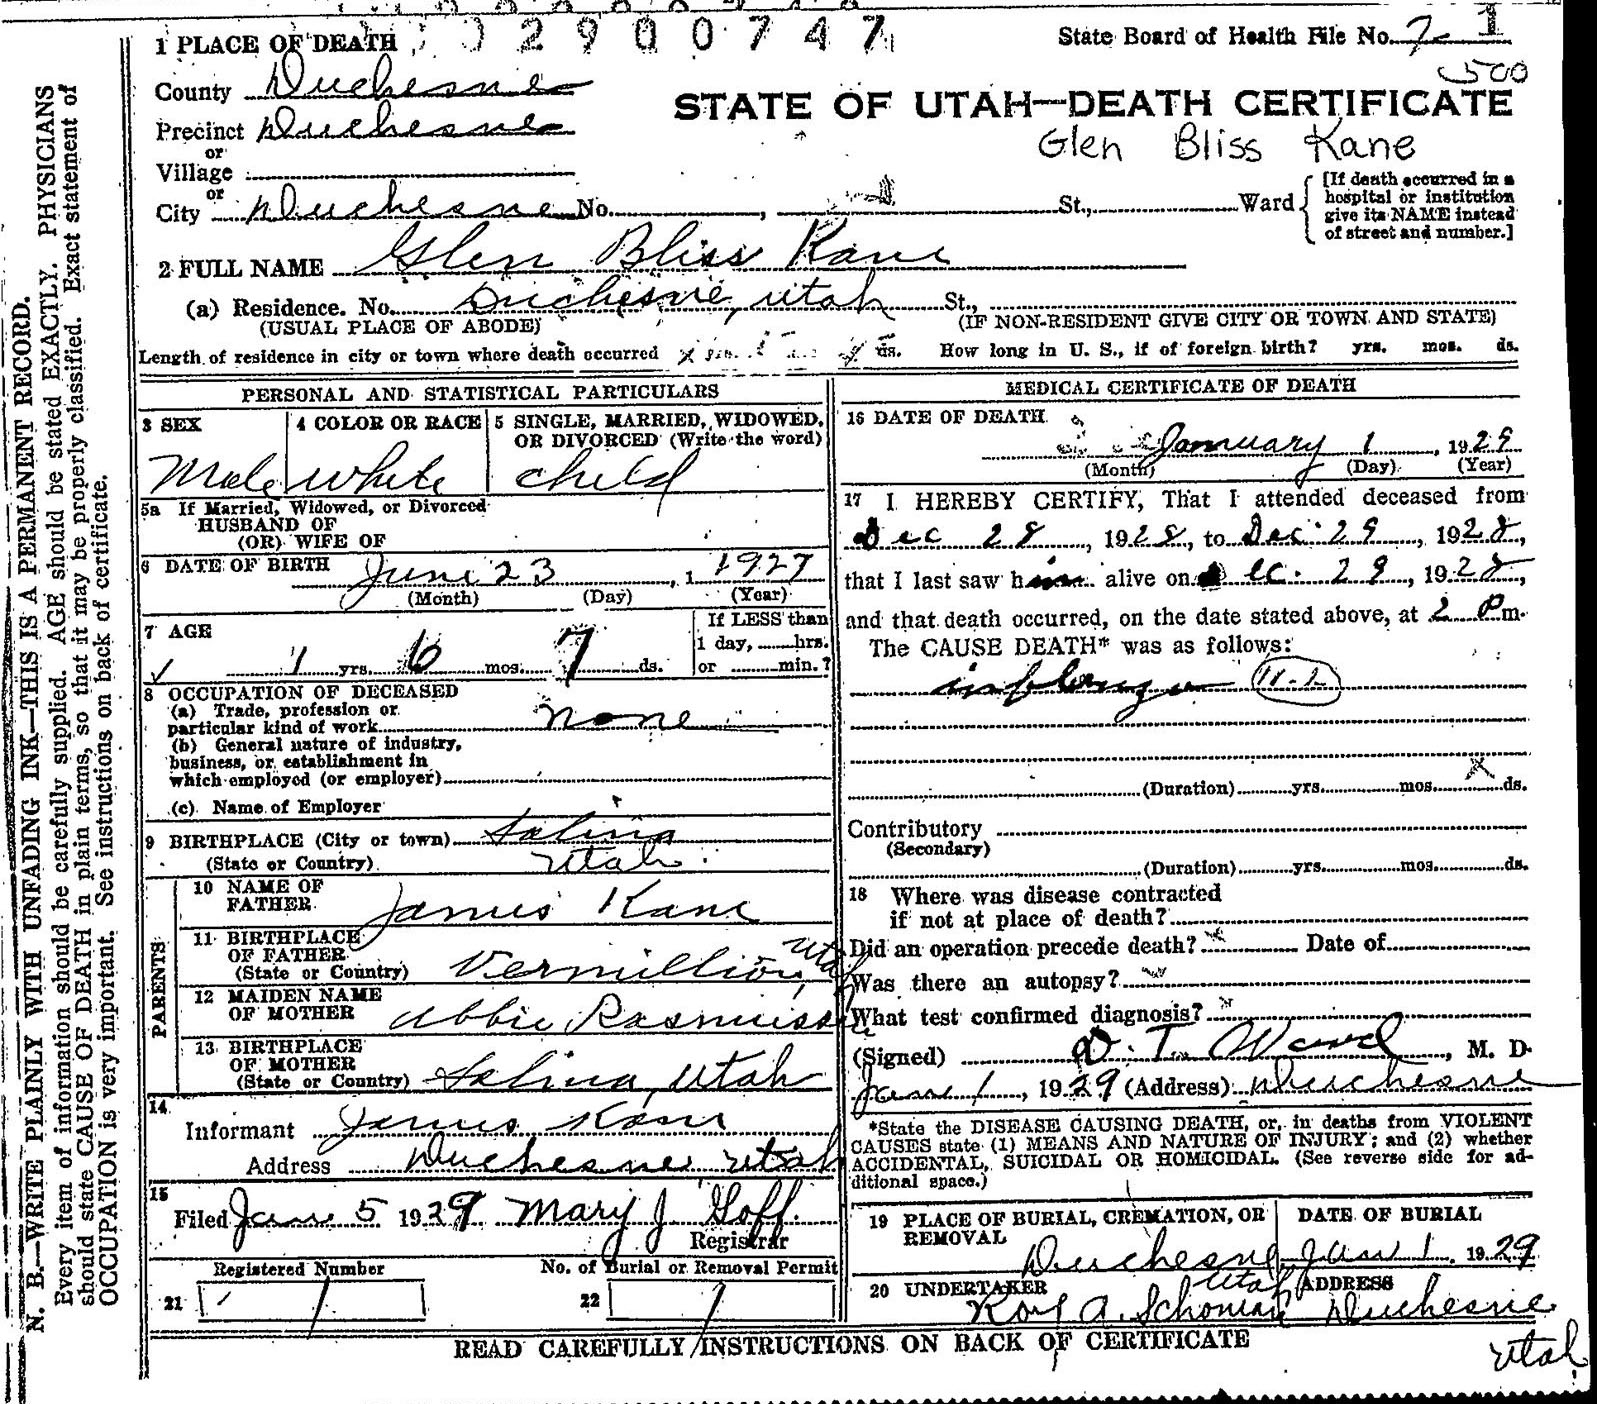 2900747
1 PLACE OF DEATH
State Board of Health File No. 7- 1
500
County Duchesne
STATE OF UTAH—DEATH CERTIFICATE
Precinct Duchesne
Glen Bliss Kane
or
Village
or
City Duchesne No. , St., Ward
[If death occurred in a
hospital or institution
give its NAME instead
of street and number.]
2 FULL NAME Glen Bliss Kane
(a) Residence. No. Duchesne, Utah St.,
(USUAL PLACE OF ABODE)
(IF NON-RESIDENT GIVE CITY OR TOWN AND STATE)
Length of residence in city or town where death occurred ds. How long in U. S., if of foreign birth? yrs. mos. ds.
PERSONAL AND STATISTICAL PARTICULARS
3 SEX
Male
4 COLOR OR RACE
White
5 SINGLE, MARRIED, WIDOWED,
OR DIVORCED (Write the word)
child
5a If Married, Widowed, or Divorced
HUSBAND OF
(OR) WIFE OF
6 DATE OF BIRTH June 23, 1 1927
(Month) (Day) (Year)
7 AGE
1 yrs. 6 mos. 7 ds.
If LESS than
1 day, hrs.
or min.?
8 OCCUPATION OF DECEASED
(a) Trade, profession or
particular kind of work none
(b) General nature of industry,
business, or establishment in
which employed (or employer)
(c) Name of Employer
9 BIRTHPLACE (City or town) Salina
(State or Country) Utah.
PARENTS
10 NAME OF
FATHER James Kane
11 BIRTHPLACE
OF FATHER
(State or Country) Vermillion, Utah
12 MAIDEN NAME
OF MOTHER Abbie Rasmussen
13 BIRTHPLACE
OF MOTHER
(State or Country) Salina, Utah
14
Informant James Kane
Address Duchesne Utah
15
Filed Jan 5 1929 Mary J Goff.
Registrar
Registered Number
21 1
No. of Burial or Removal Permit
22 1
MEDICAL CERTIFICATE OF DEATH
16 DATE OF DEATH
January 1, 1929
(Month) (Day) (Year)
17 I HEREBY CERTIFY, That I attended deceased from
Dec 28, 1928, to Dec. 29, 1928,
that I last saw him alive on Dec. 29, 1928,
and that death occurred, on the date stated above, at 2 Pm.
The CAUSE DEATH* was as follows:
influenza 11-2
(Duration) yrs. mos. ds.
Contributory
(Secondary)
(Duration) yrs. mos. ds.
18 Where was disease contracted
if not at place of death?
Did an operation precede death? Date of
Was there an autopsy?
What test confirmed diagnosis?
(Signed) , M. D.
Jan 1, 1929 (Address) Duchesne
*State the DISEASE CAUSING DEATH, or, in deaths from VIOLENT
CAUSES state (1) MEANS AND NATURE OF INJURY; and (2) whether
ACCIDENTAL, SUICIDAL OR HOMICIDAL. (See reverse side for ad-
ditional space.)
19 PLACE OF BURIAL, CREMATION, OR
REMOVAL
Duchesne Utah
DATE OF BURIAL
Jan 1. 1929
20 UNDERTAKER
A.
ADDRESS
Duchesne
Utah
READ CAREFULLY INSTRUCTIONS ON BACK OF CERTIFICATE
N. B.—WRITE PLAINLY WITH UNFADING INK—THIS IS A PERMANENT RECORD.
Every item of information should be carefully supplied. AGE should be stated EXACTLY. PHYSICIANS
should state CAUSE OF DEATH in plain terms, so that it may be properly classified. Exact statement of
OCCUPATION is very important. See instructions on back of certificate.